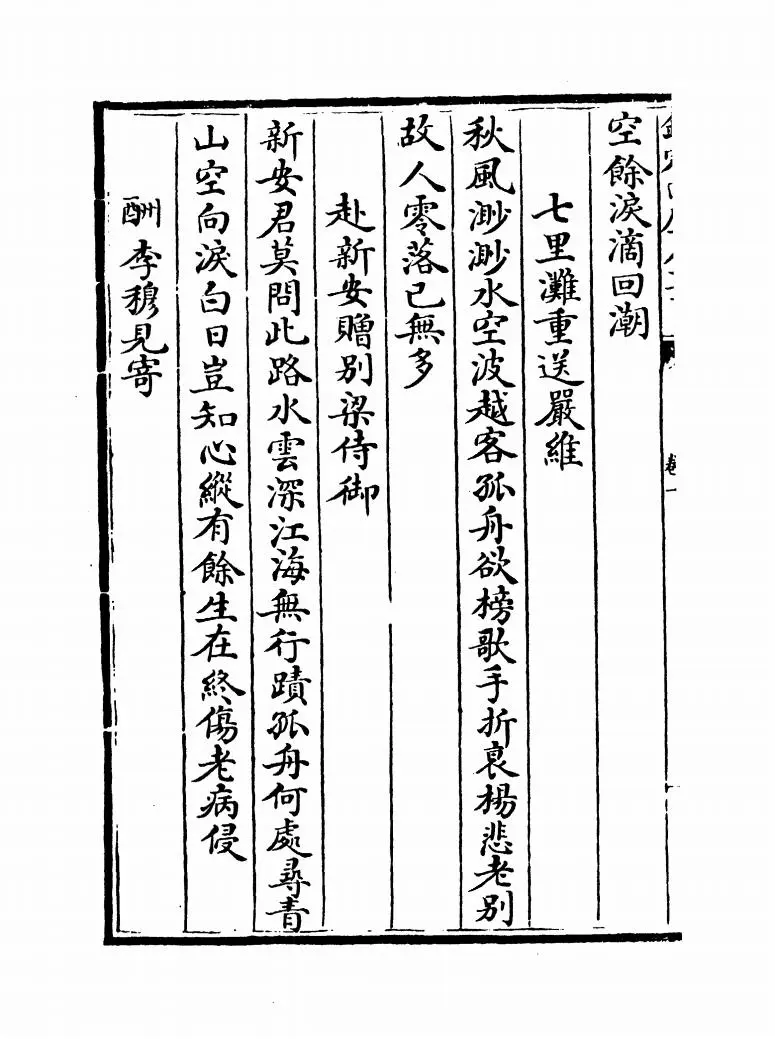 空餘淚滴回潮
七里灘重送嚴維
秋風渺渺水空波越客孤舟欲榜歌手折衰楊悲老別
故人零落已無多
赴新安贈別梁侍御
新安君莫問此路水雲深江海無行蹟孤舟何處尋青
山空向淚白日豈知心縱有餘生在終傷老病侵
酬李穆見寄